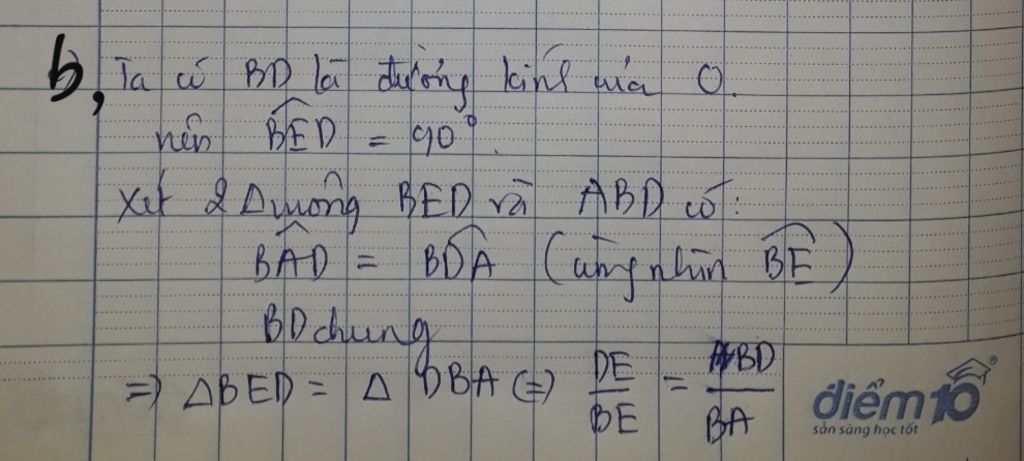 b, Ta có BD là đường kính của O.
nên BED = 90°.
Xét 2 Δ vuông BED và ABD có:
BAD = BDA (cùng nhìn BE)
BD chung
=> ΔBED = Δ DBA (=) DE/BE = BD/BA
điểm10®
sẵn sàng học tốt